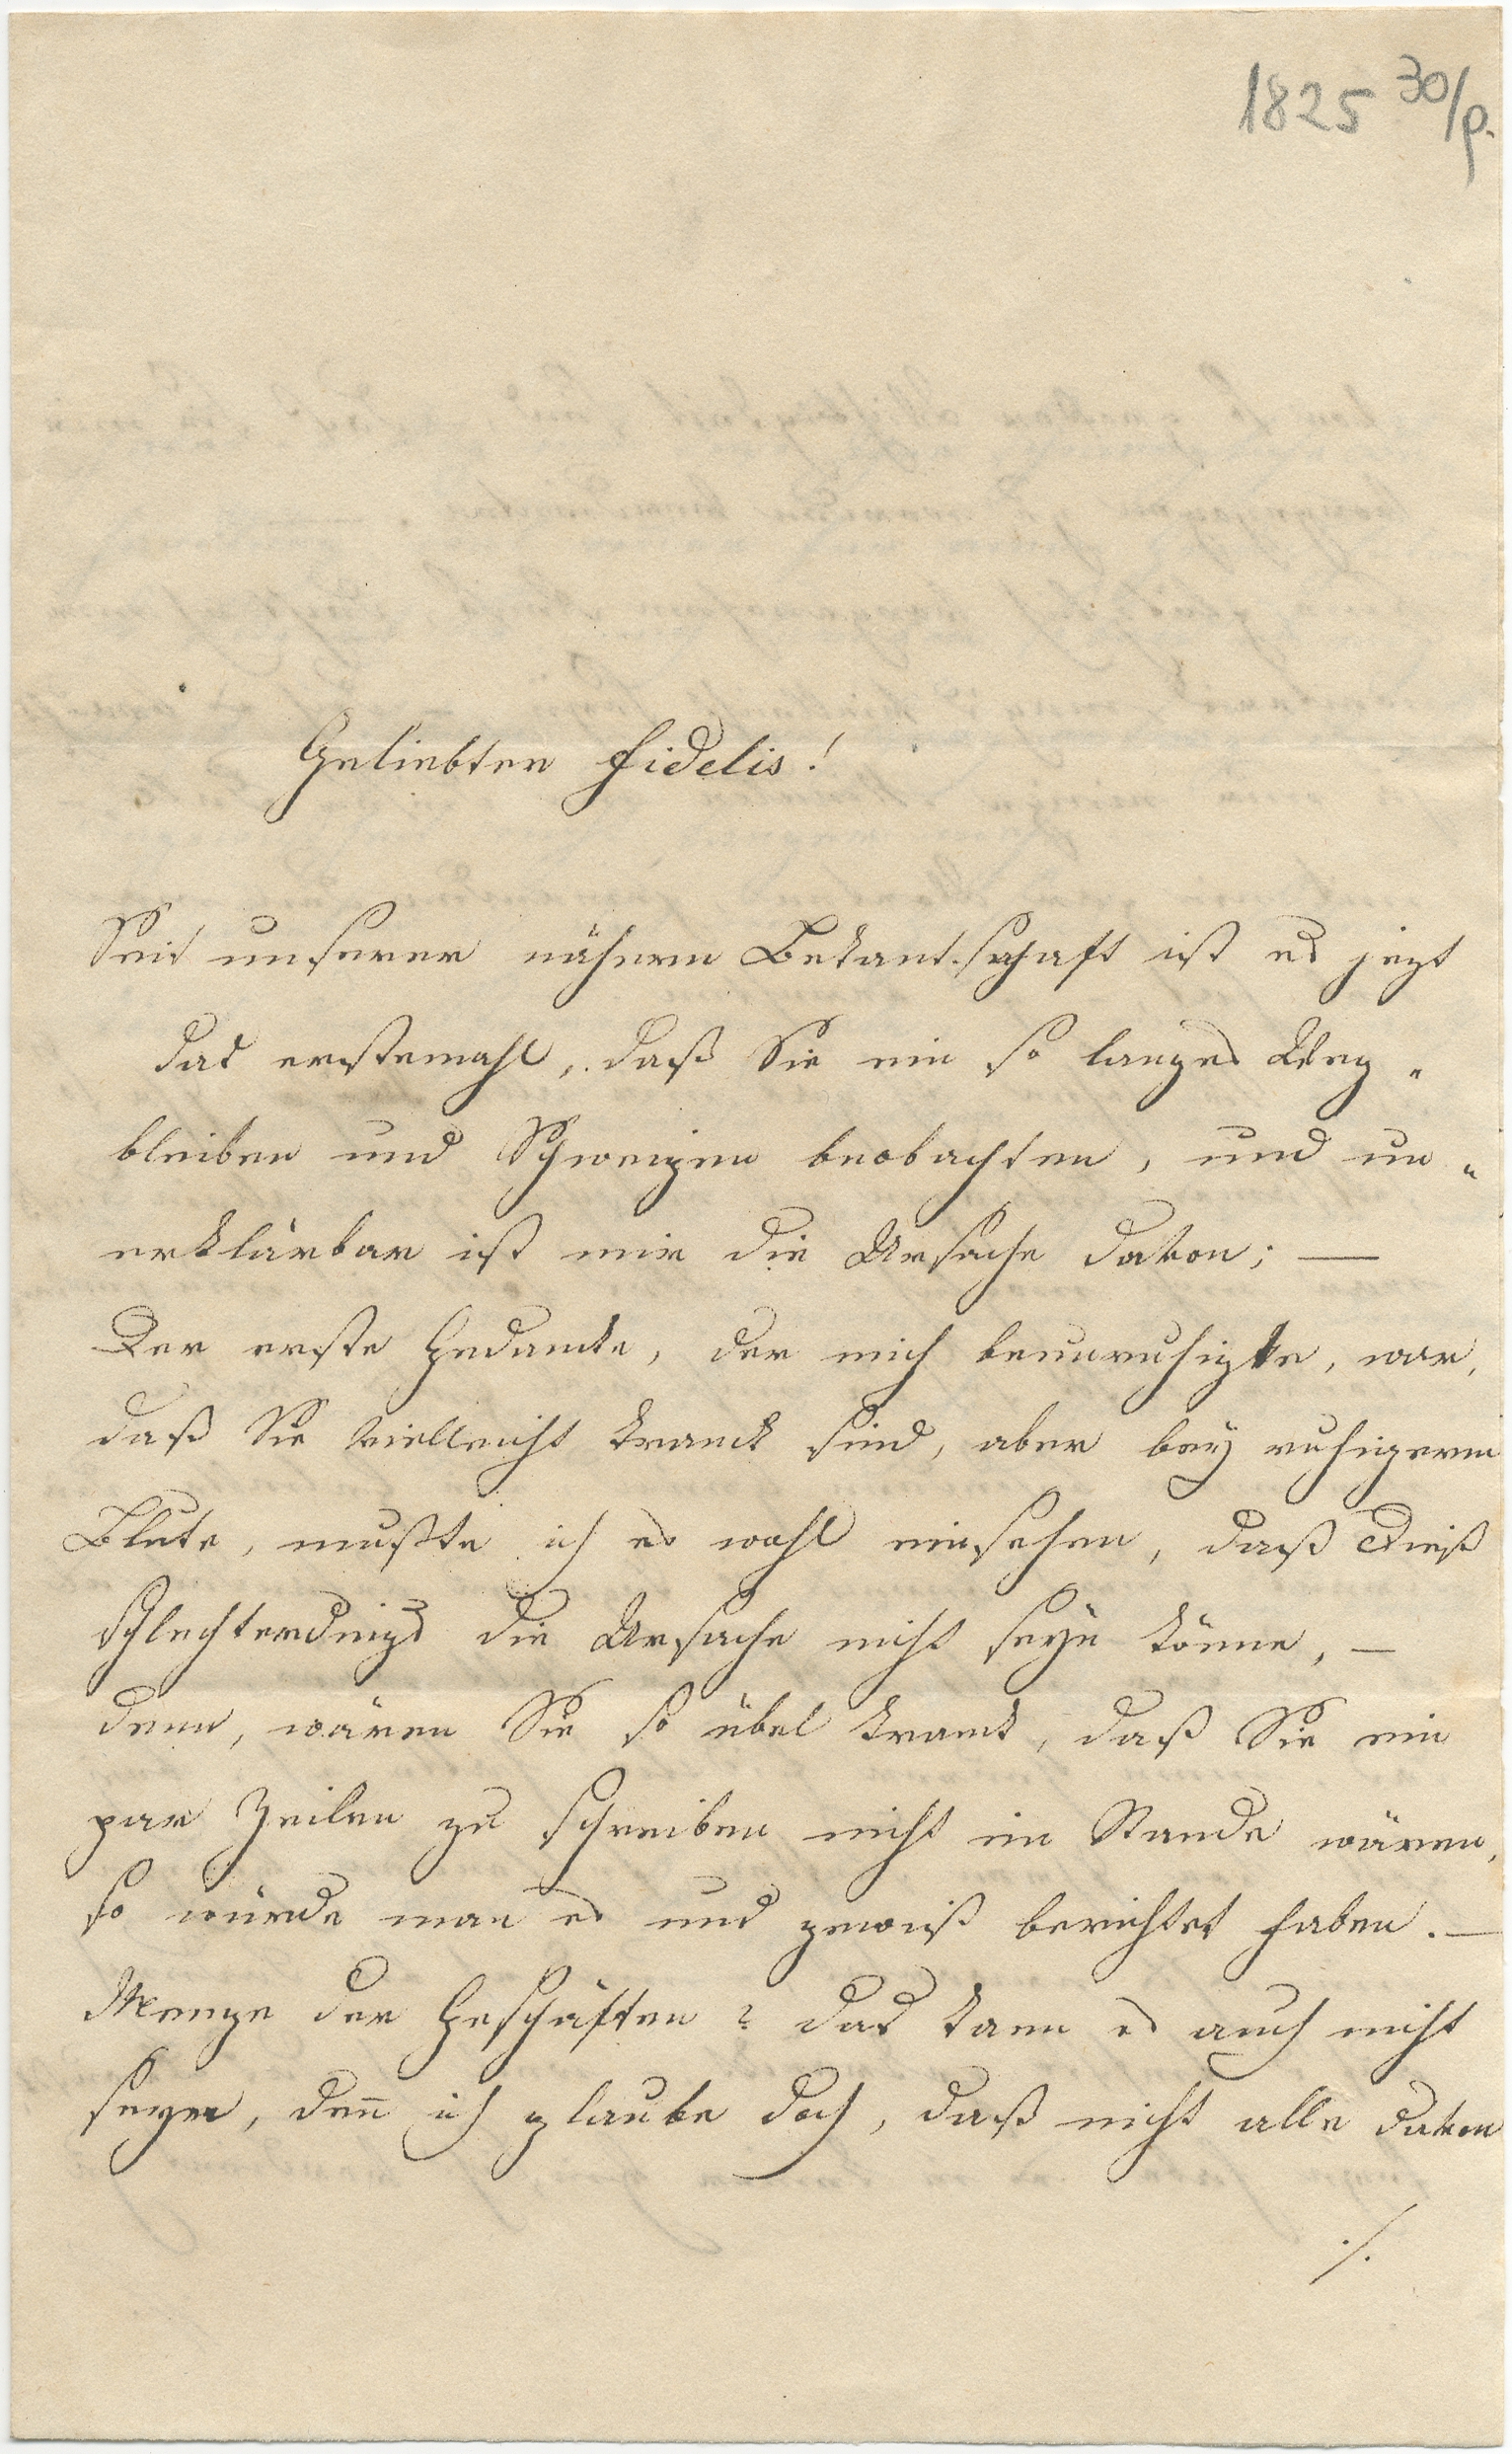 1825 30/p.
Geliebter Fidelis!
Seit unserer nähern Bekantschaft ist es jezt
das erstemahl, daß Sie ein so langes Weg"
bleiben und Schweigen beobachten, und un"
erklärbar ist mir die Ursache davon; —
Der erste Gedanke, der mich beunruhigte, war,
daß Sie vielleicht krank sind, aber bey ruhigerm
Blute, mußte ich es wohl einsehen, daß dieß
schlechterdings die Ursache nicht seyn könne, —
denn, wären Sie so übel krank, daß Sie ein
par Zeilen zu schreiben nicht im Stande wären,
so würde man es uns gewiß berichtet haben. —
Menge der Geschäften? das kann es auch nicht
seyn, den̄ ich glaube doch, daß nicht alle davon
./.